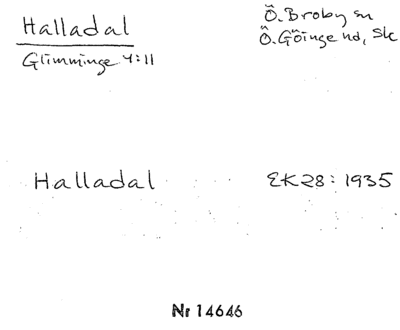 Halladal
Glimminge 4:11
Ö. Broby sn
Ö. Göinge hd, Sk
Halladal
EK28: 1935
Nr 14646